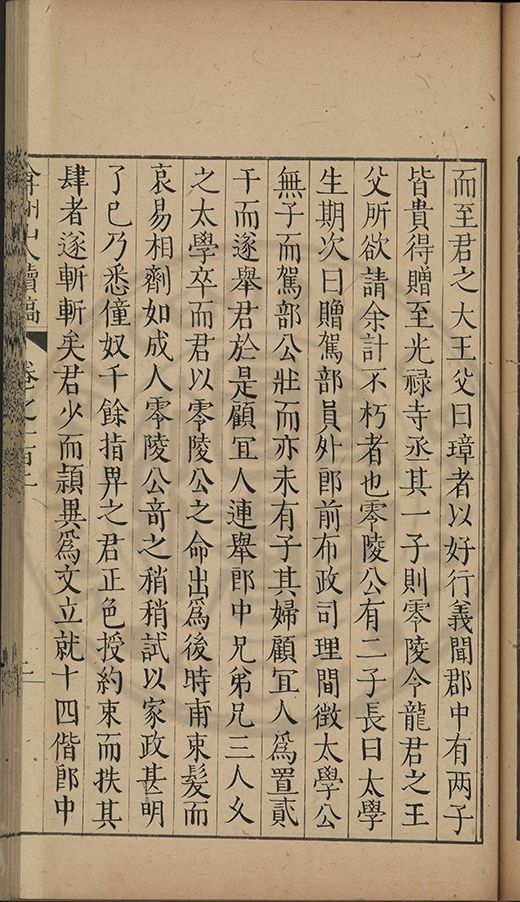 而至君之大王父曰璋者以好行義聞郡中有两子
皆貴得贈至光禄寺丞其一子則零陵令龍君之王
父所欲請余計不朽者也零陵公有二子長曰太學
生期次曰贈駕部員外郎前布政司理問徵太學公
無子而駕部公壯而亦未有子其婦顧宜人爲置貳
于而遂舉君於是顧宜人連舉郎中兄弟兄三人乆
之太學卒而君以零陵公之命出爲後時甫束髮而
哀易相劑如成人零陵公竒之稍稍試以家政甚明
了已乃悉僮奴千餘指畀之君正色授約束而扶其
肆者遂斬斬矣君少而頴異爲文立就十四偕郎中
弇州山人續稿 卷之一百二